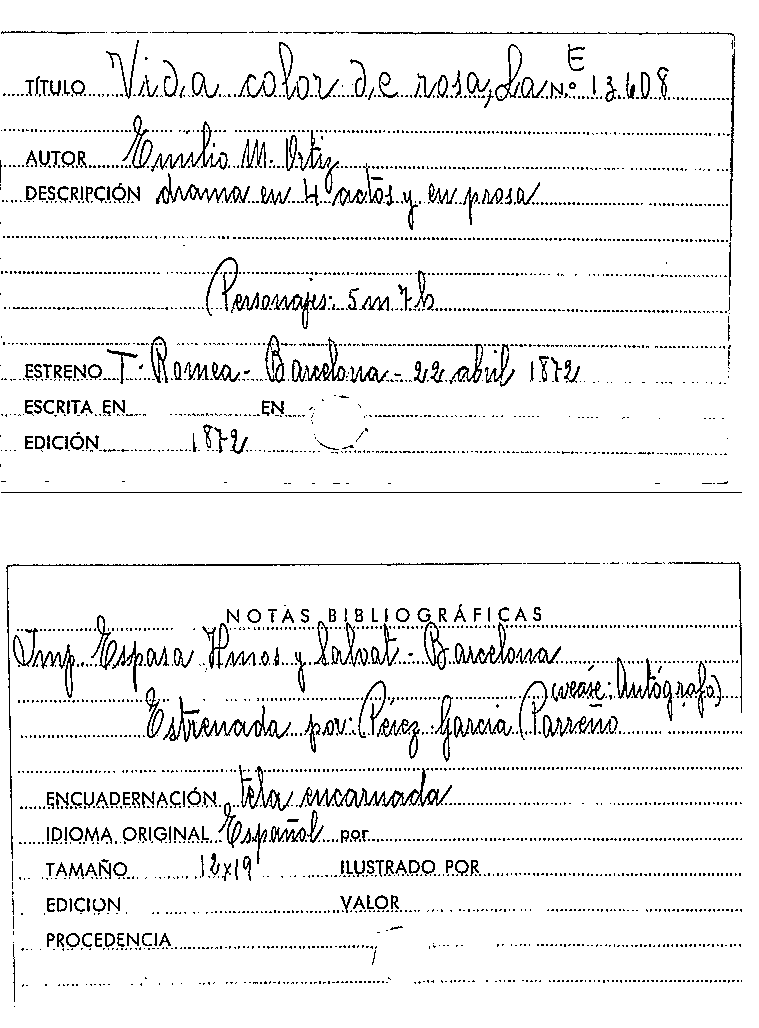 E
TÍTULO Vida color de rosa, La N.º 13608
AUTOR Emilio M. Ortiz
DESCRIPCIÓN drama en 4 actos y en prosa
Personajes: 5 m 7 h
ESTRENO T. Romea - Barcelona - 22 abril 1872
ESCRITA EN EN
EDICIÓN 1872
NOTAS BIBLIOGRÁFICAS
Imp. Espasa Hnos y Salvat - Barcelona
(veáse: Autógrafo)
Estrenada por: Pérez - García Parreño
ENCUADERNACIÓN tela encarnada
IDIOMA ORIGINAL Español por
TAMAÑO 12x19 ILUSTRADO POR
EDICION VALOR
PROCEDENCIA